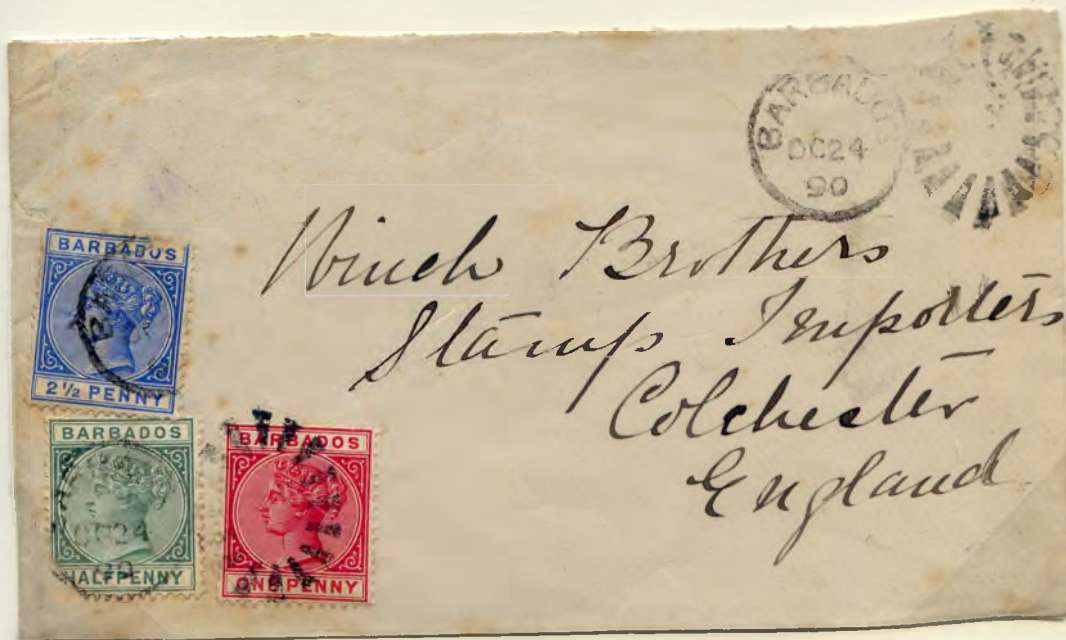 BARBADOS
OC24
90
Winch Brothers
Stamp Importers
Colchester
England
BARBADOS
2½ PENNY
BARBADOS
OC24
90
HALFPENNY
BARBADOS
ONE PENNY